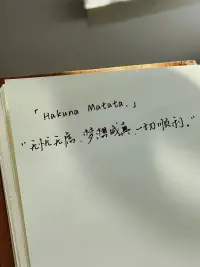 「Hakuna Matata.」
"无忧无虑、梦想成真、一切顺利。"